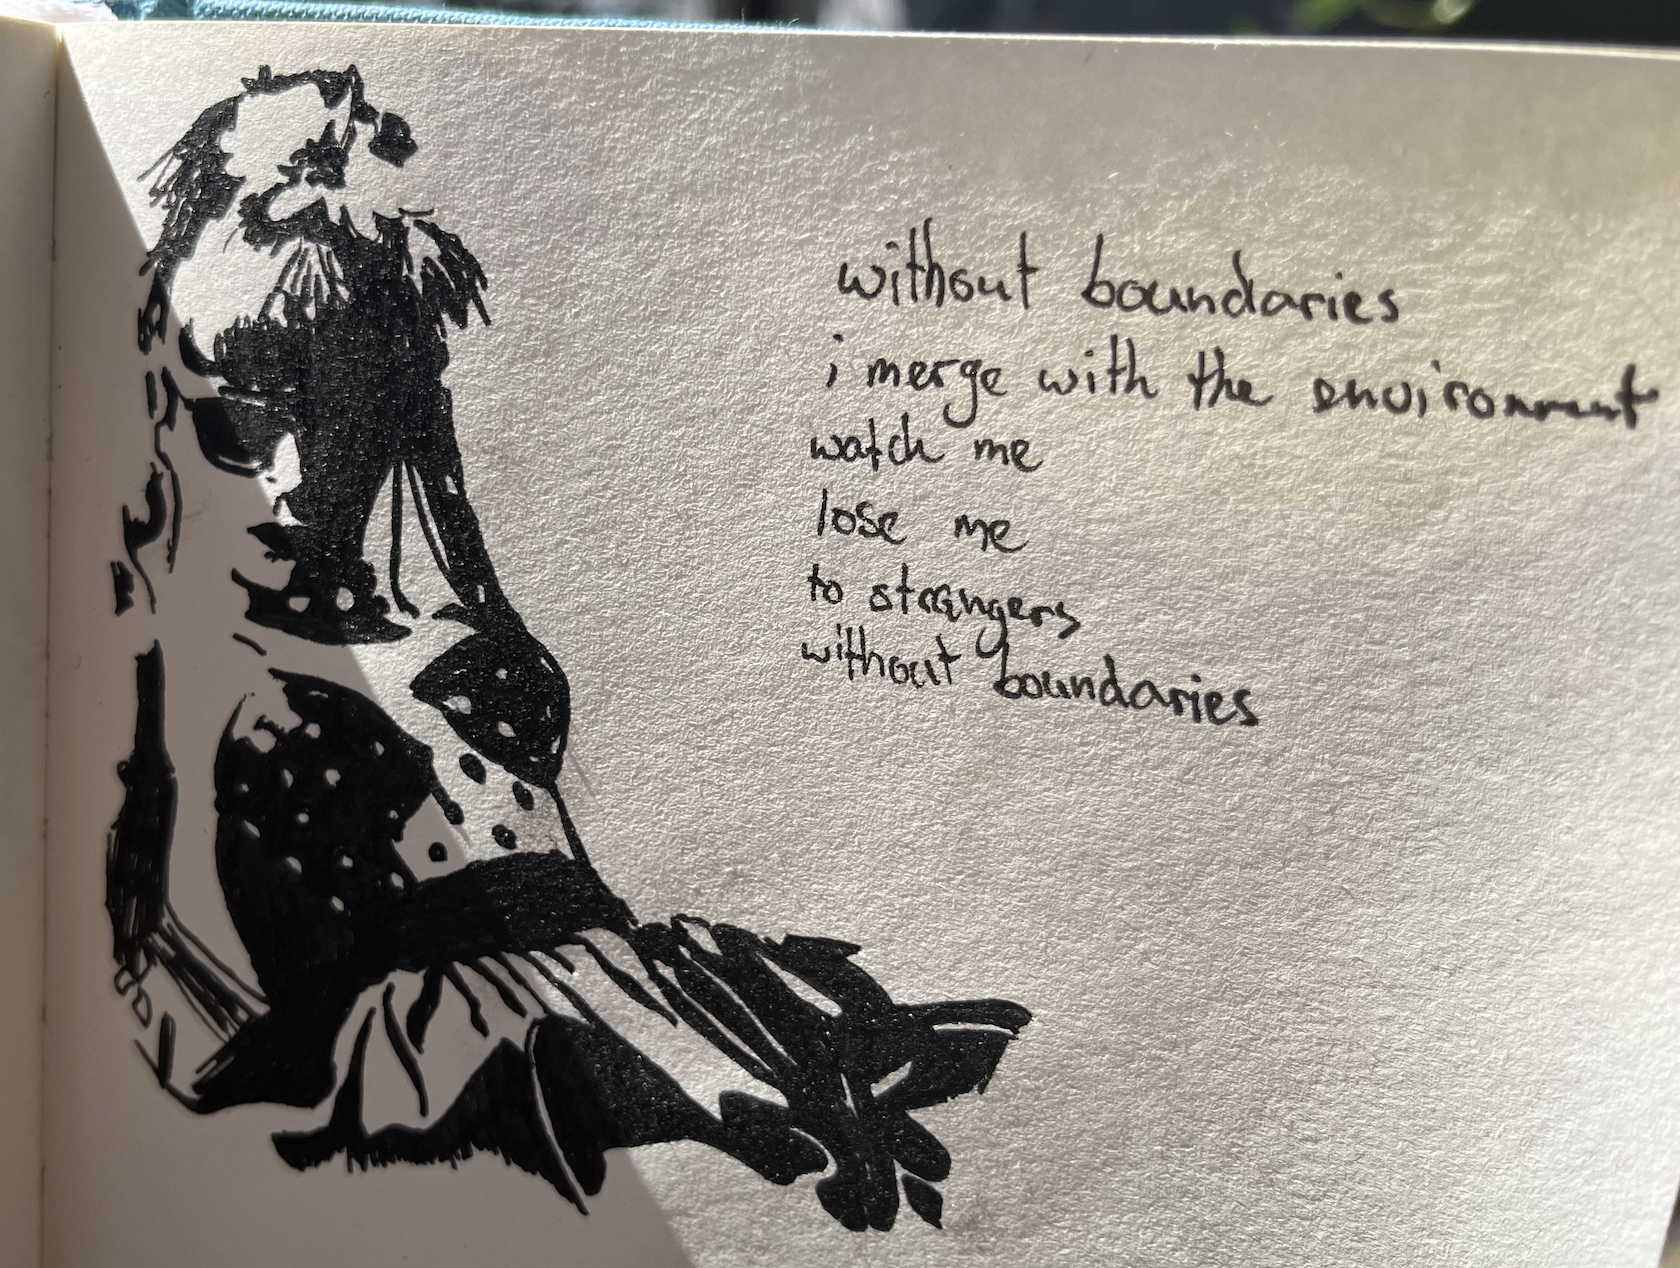 without boundaries
i merge with the environment
watch me
lose me
to strangers
without boundaries